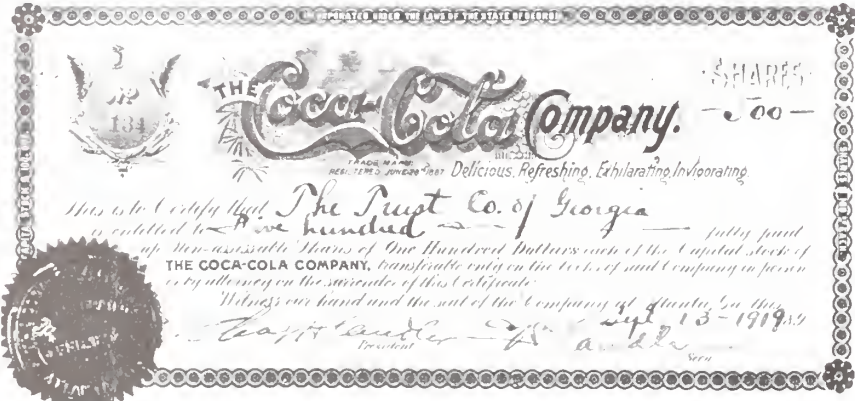 INCORPORATED UNDER THE LAWS OF THE STATE OF GEORGIA
No
134
SHARES
-500-
THE Coca-Cola Company.
TRADE MARK
REGISTERED JUNE 28th 1887 Delicious, Refreshing, Exhilarating, Invigorating.
This is to Certify that The Trust Co. of Georgia
is entitled to Five hundred fully paid
up Non-assessable Shares of One Hundred Dollars each of the Capital stock of
THE COCA-COLA COMPANY, transferable only on the books of said Company in person
or by attorney on the surrender of this Certificate
Witness our hand and the seal of the Company at Atlanta, Ga. this
Sept. 13-1919
Candler
President
Secy